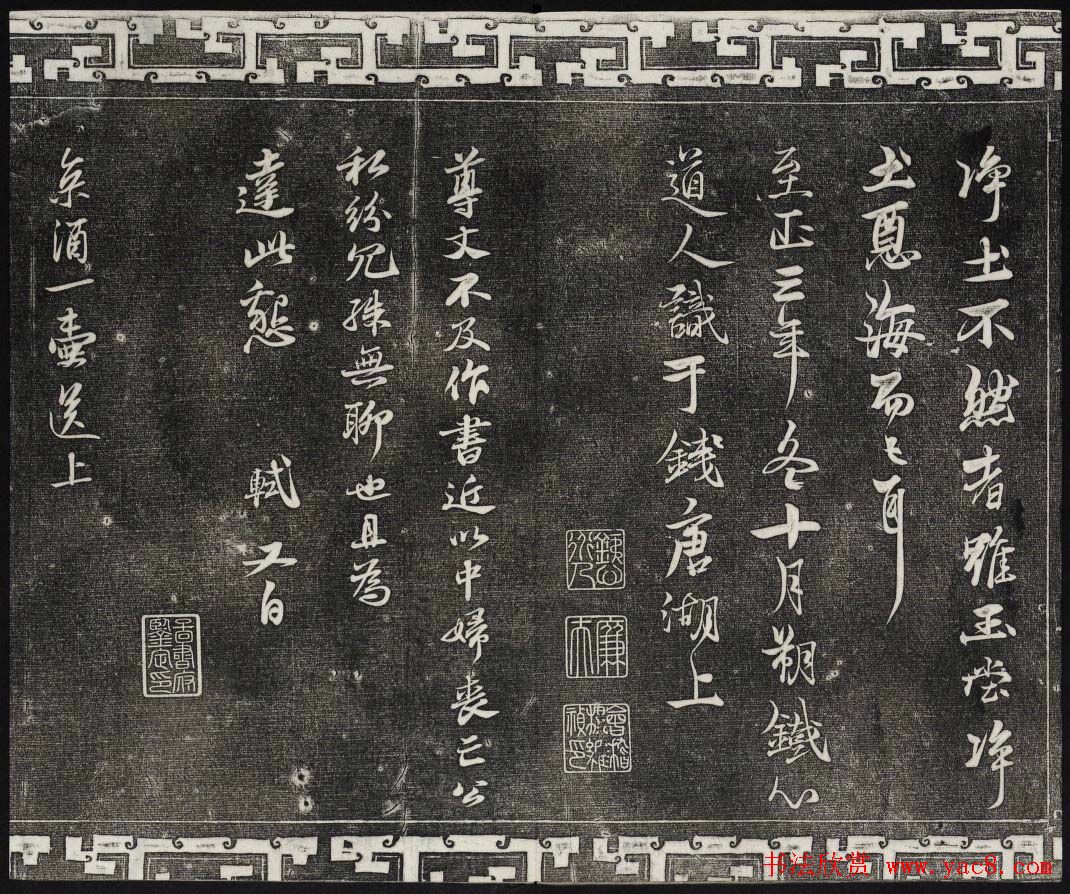 淨土不然者雖玉堂淨
土惡海而已耳
至正三年冬十月朔鐵心
道人識于錢唐湖上
廉夫
會稽楊維禎印
尊丈不及作書近以中婦喪亡公
私紛冗殊無聊也且為
達此懇　軾又白
京酒一壺送上
书法欣赏 www.yac8.com